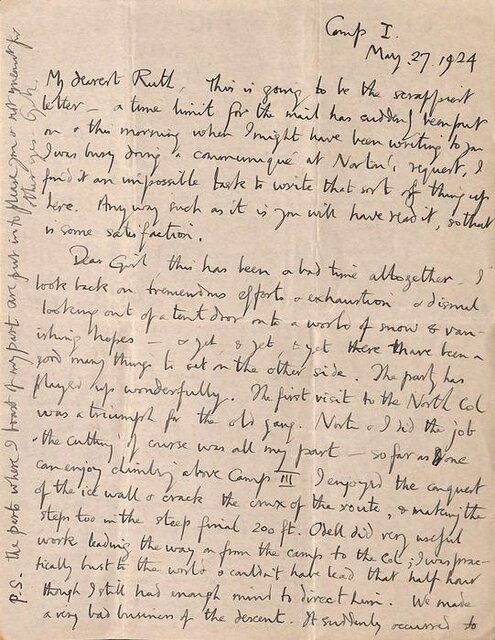 Camp I.
May. 27. 1924
My dearest Ruth, This is going to be the scrappiest
letter — a time limit for the mail has suddenly been put
on & this morning when I might have been writing to you
I was busy doing a communiqué at Norton's request, I
find it an impossible task to write that sort of thing up
here. Any way such as it is you will have read it, so that
is some satisfaction.
Dear Girl, this has been a bad time altogether. I
look back on tremendous efforts & exhaustion & dismal
looking out of a tent door onto a world of snow & van-
ishing hopes — & yet, & yet, & yet there have been a
good many things to set on the other side. The party has
played up wonderfully. The first visit to the North Col
was a triumph for the old gang. Norton & I did the job
& the cutting of course was all my part — so far as one
can enjoy climbing above Camp III I enjoyed the conquest
of the ice wall & crack the crux of the route, & making the
steps too in the steep final 200 ft. Odell did very useful
work leading the way on from the camp to the Col; I was prac-
tically bust to the world & couldn't have lead that half hour
though I still had enough mind to direct him. We made
a very bad business of the descent. It suddenly occurred to
P.S. The parts where I boast of my part are put in to please you & not meant for
other eyes. G.M.